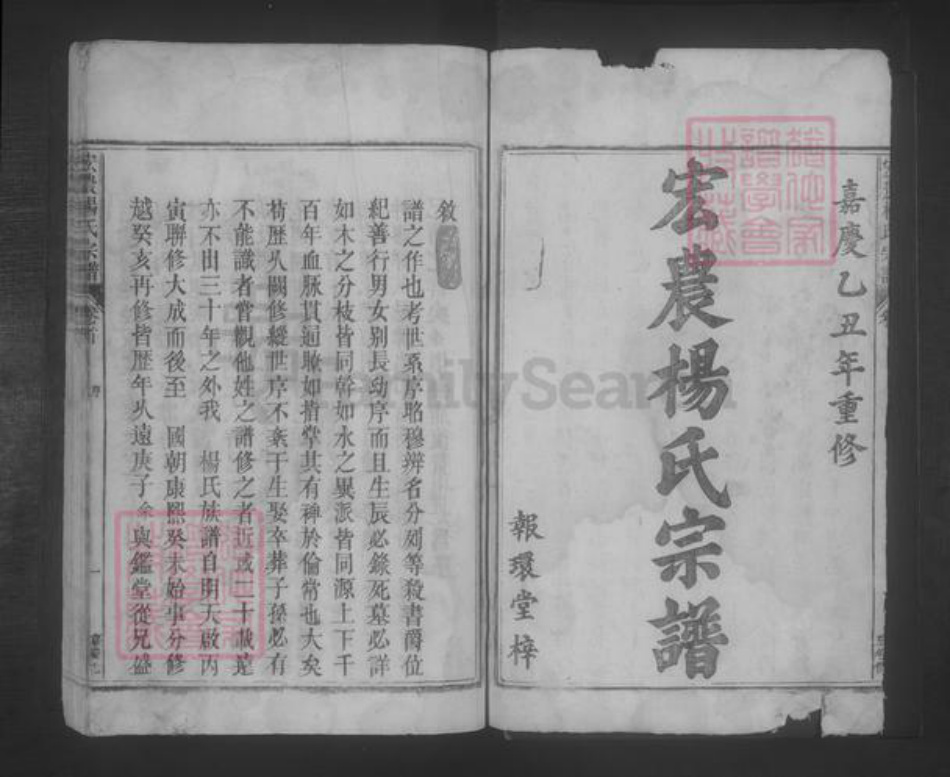 嘉慶乙丑年重修
宏農楊氏宗譜
報環堂梓
敘
譜之作也考世系序昭穆辨名分列等殺書爵位
紀善行男女别長幼序而且生辰必錄死墓必詳
如木之分枝皆同幹如水之異派皆同源上下千
百年血脉貫通瞭如指掌其有裨於倫常也大矣
苟歷久闕修縱世序不紊于生娶卒葬子孫必有
不能識者嘗觀他姓之譜修之者近或二十載遠
亦不出三十年之外我 楊氏族譜自明天啟丙
寅聨修大成而後至 國朝康熙癸未始事分修
越癸亥再修皆歷年久遠庚子余與鑑堂從兄盛
FamilySearch